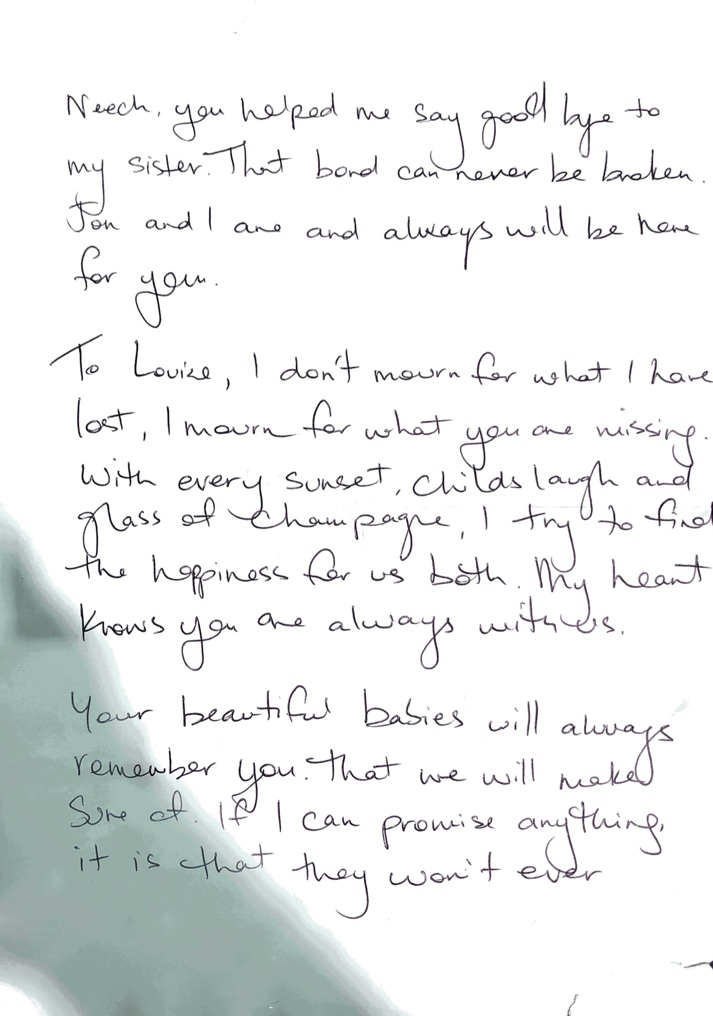 Neech, you helped me say good bye to
my sister. That bond can never be broken.
Jon and I are and always will be here
for you.
To Louise, I don't mourn for what I have
lost, I mourn for what you are missing.
With every sunset, childs laugh and
glass of champagne, I try to find
the happiness for us both. My heart
knows you are always with us.
Your beautiful babies will always
remember you. That we will make
sure of. If I can promise anything,
it is that they won't ever